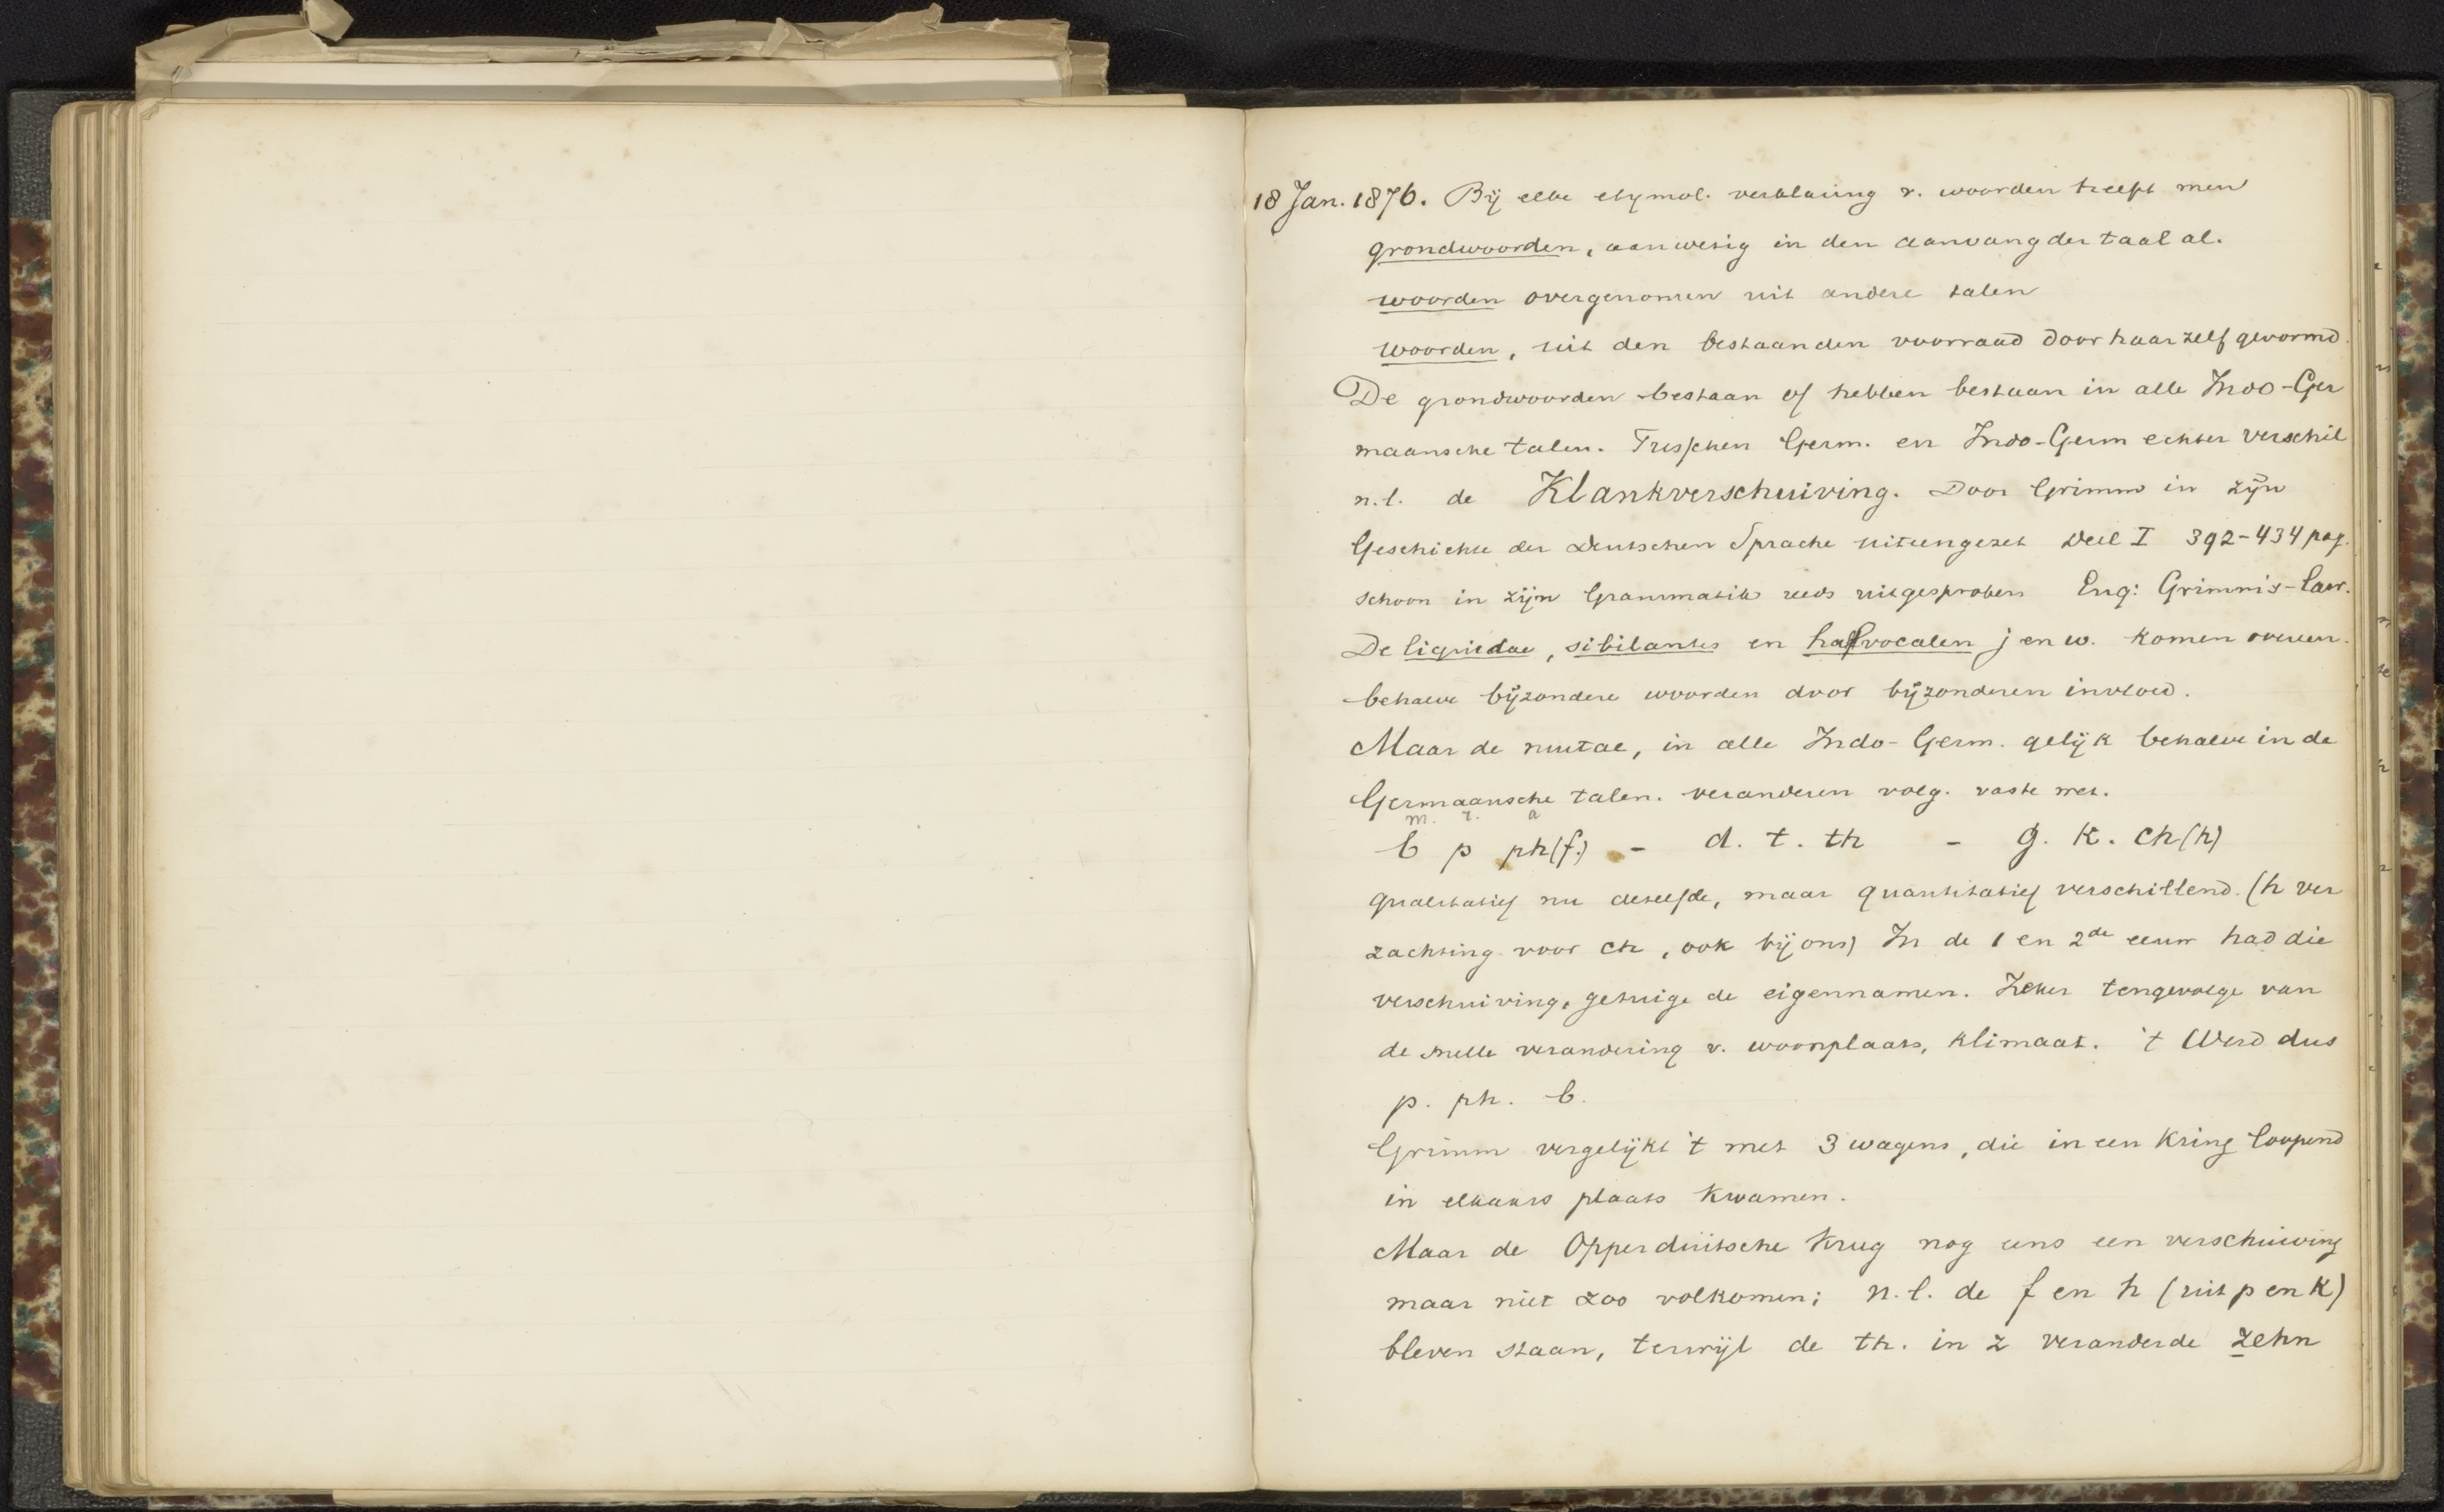 18 Jan. 1876. Bij elke etymol. verklaring v. woorden heeft men
grondwoorden, aanwezig in den aanvang der taal al.
woorden overgenomen uit andere talen
woorden, uit den bestaanden voorraad door haar zelf gevormd.
De grondwoorden bestaan of hebben bestaan in alle Indo-Ger
maansche talen. Tusschen Germ. en Indo-Germ echter verschil
n.l. de Klankverschuiving. Door Grimm in zijn
Geschichte der Deutschen Sprache uiteengezet Deel I 392-434 pag.
schoon in zijn Grammatik reeds uitgesproken Eng: Grimm's-Law.
De liquidae, sibilantes en halfvocalen j en w. komen overeen.
behalve bijzondere woorden door bijzonderen invloed.
Maar de mutae, in alle Indo-Germ. gelijk behalve in de
Germaansche talen. veranderen volg. vaste wet.
m. t. a
b p ph(f.) - d. t. th - g. k. ch(h)
qualitatief nu dezelfde, maar quantitatief verschillend. (h ver
zachting voor ch, ook bij ons) In de 1 en 2de eeuw had die
verschuiving, getuige de eigennamen. Zeker tengevolge van
de snelle verandering v. woonplaats, klimaat. 't Werd dus
p. ph. b.
Grimm vergelijkt 't met 3 wagens, die in een kring loopend
in elkaars plaats kwamen.
Maar de Opperduitsche kreeg nog eens een verschuiving
maar niet zoo volkomen; n.l. de f en h (uit p en k)
bleven staan, terwijl de th. in z veranderde zehn